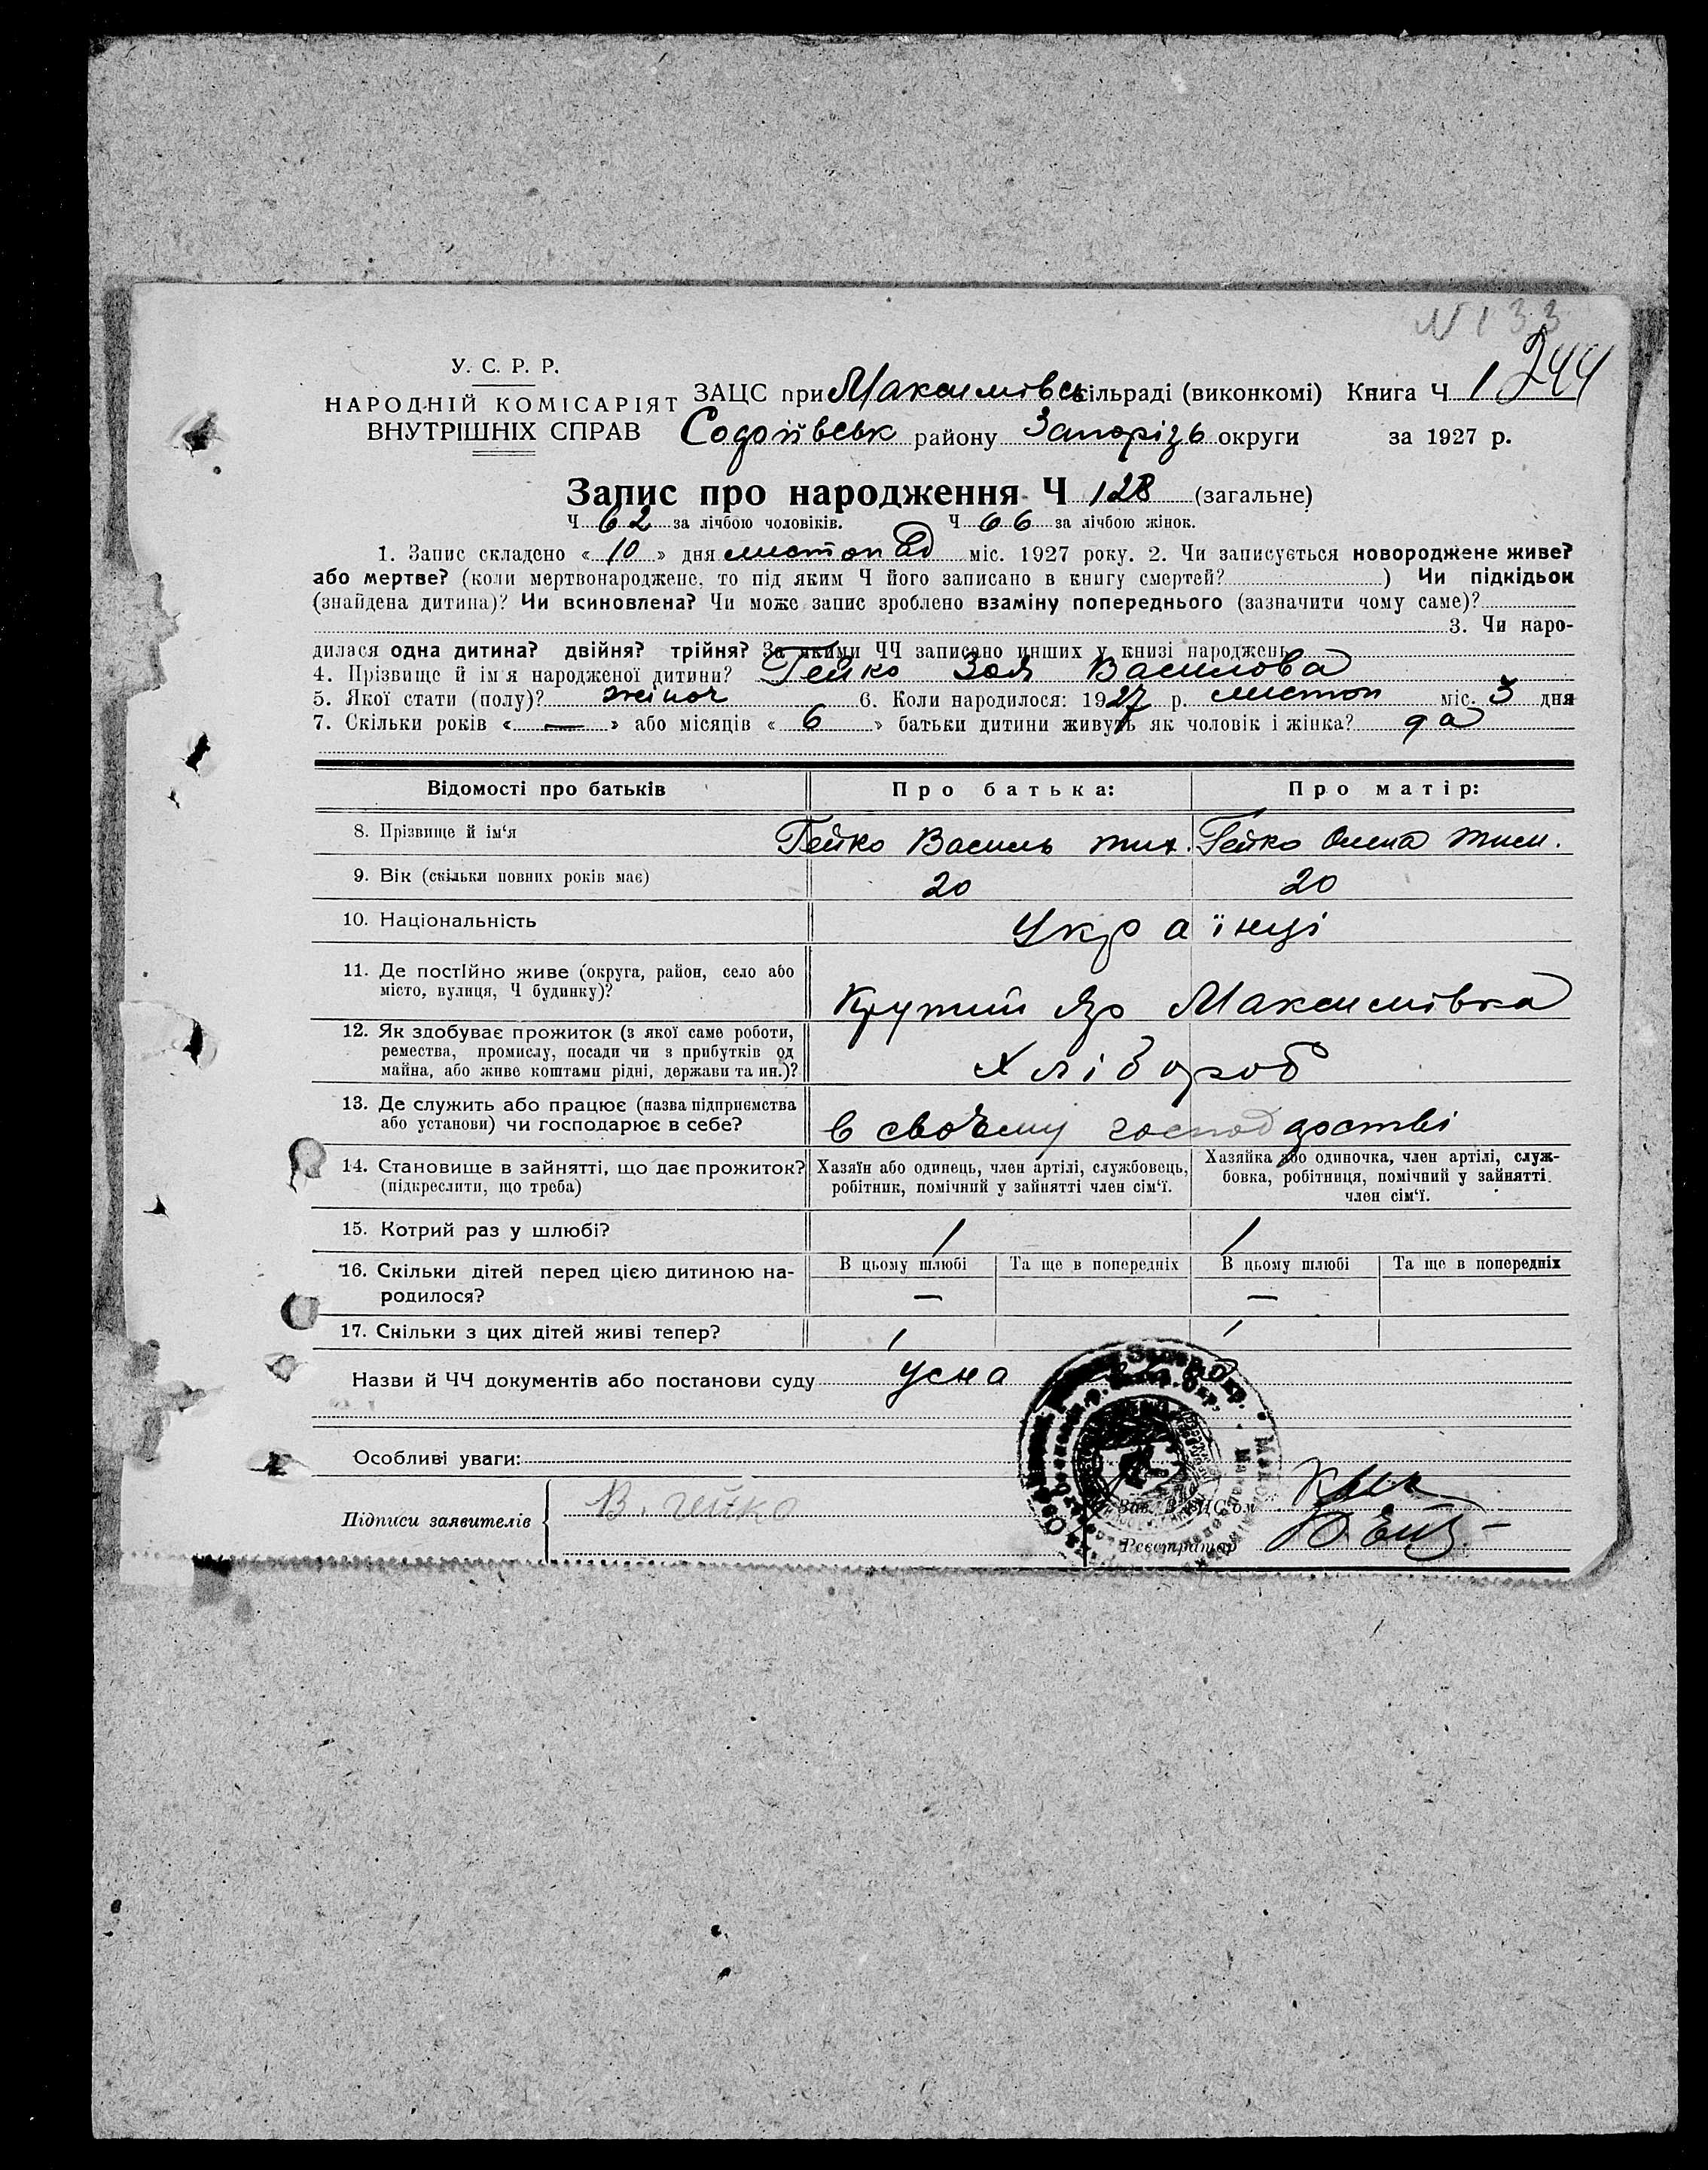 N 133
У. С. Р. Р.
НАРОДНІЙ КОМІСАРІЯТ
ВНУТРІШНІХ СПРАВ
ЗАЦС при Максимівсь сільраді (виконкомі) Книга Ч 1 244
району Запорізь округи за 1927 р.
Запис про народження Ч 128 (загальне)
Ч 62 за лічбою чоловіків. Ч 66 за лічбою жінок.
1. Запис складено « 10 » дня листопад міс. 1927 року. 2. Чи записується новороджене живе?
або мертве? (коли мертвонароджене, то під яким Ч його записано в книгу смертей? ) Чи підкідьок
(знайдена дитина)? Чи всиновлена? Чи може запис зроблено взаміну попереднього (зазначити чому саме)?
3. Чи наро-
дилася одна дитина? двійня? трійня? За якими ЧЧ записано инших у книзі народжень
4. Прізвище й ім'я народженої дитини? Гейко Зоя Василова
5. Якої стати (полу)? жіноч 6. Коли народилося: 1927 р. листоп міс. 3 дня
7. Скільки років « — » або місяців « 6 » батьки дитини живуть як чоловік і жінка? да
Відомості про батьків Про батька: Про матір:
8. Прізвище й ім'я Гейко Василь тих. Гейко Олена тим.
9. Вік (скільки повних років має) 20 20
10. Національність Українці
11. Де постійно живе (округа, район, село або
місто, вулиця, Ч будинку)? Крутий Яр Максимівка
12. Як здобуває прожиток (з якої саме роботи,
ремества, промислу, посади чи з прибутків од
майна, або живе коштами рідні, держави та ин.)? Хлібороб
13. Де служить або працює (назва підприємства
або установи) чи господарює в себе? в своєму господарстві
14. Становище в зайнятті, що дає прожиток? Хазяїн або одинець, член артілі, службовець, Хазяйка або одиночка, член артілі, служ-
(підкреслити, що треба) робітник, помічний у зайнятті член сім'ї. бовка, робітниця, помічний у зайнятті
член сім'ї.
15. Котрий раз у шлюбі? 1 1
16. Скільки дітей перед цією дитиною на- В цьому шлюбі Та ще в попередніх В цьому шлюбі Та ще в попередніх
родилося? — —
17. Скільки з цих дітей живі тепер? 1 1
Назви й ЧЧ документів або постанови суду усна
Особливі уваги:
Підписи заявителів В. Гейко
Зав. ЗАЦС'ом
Реєстратор